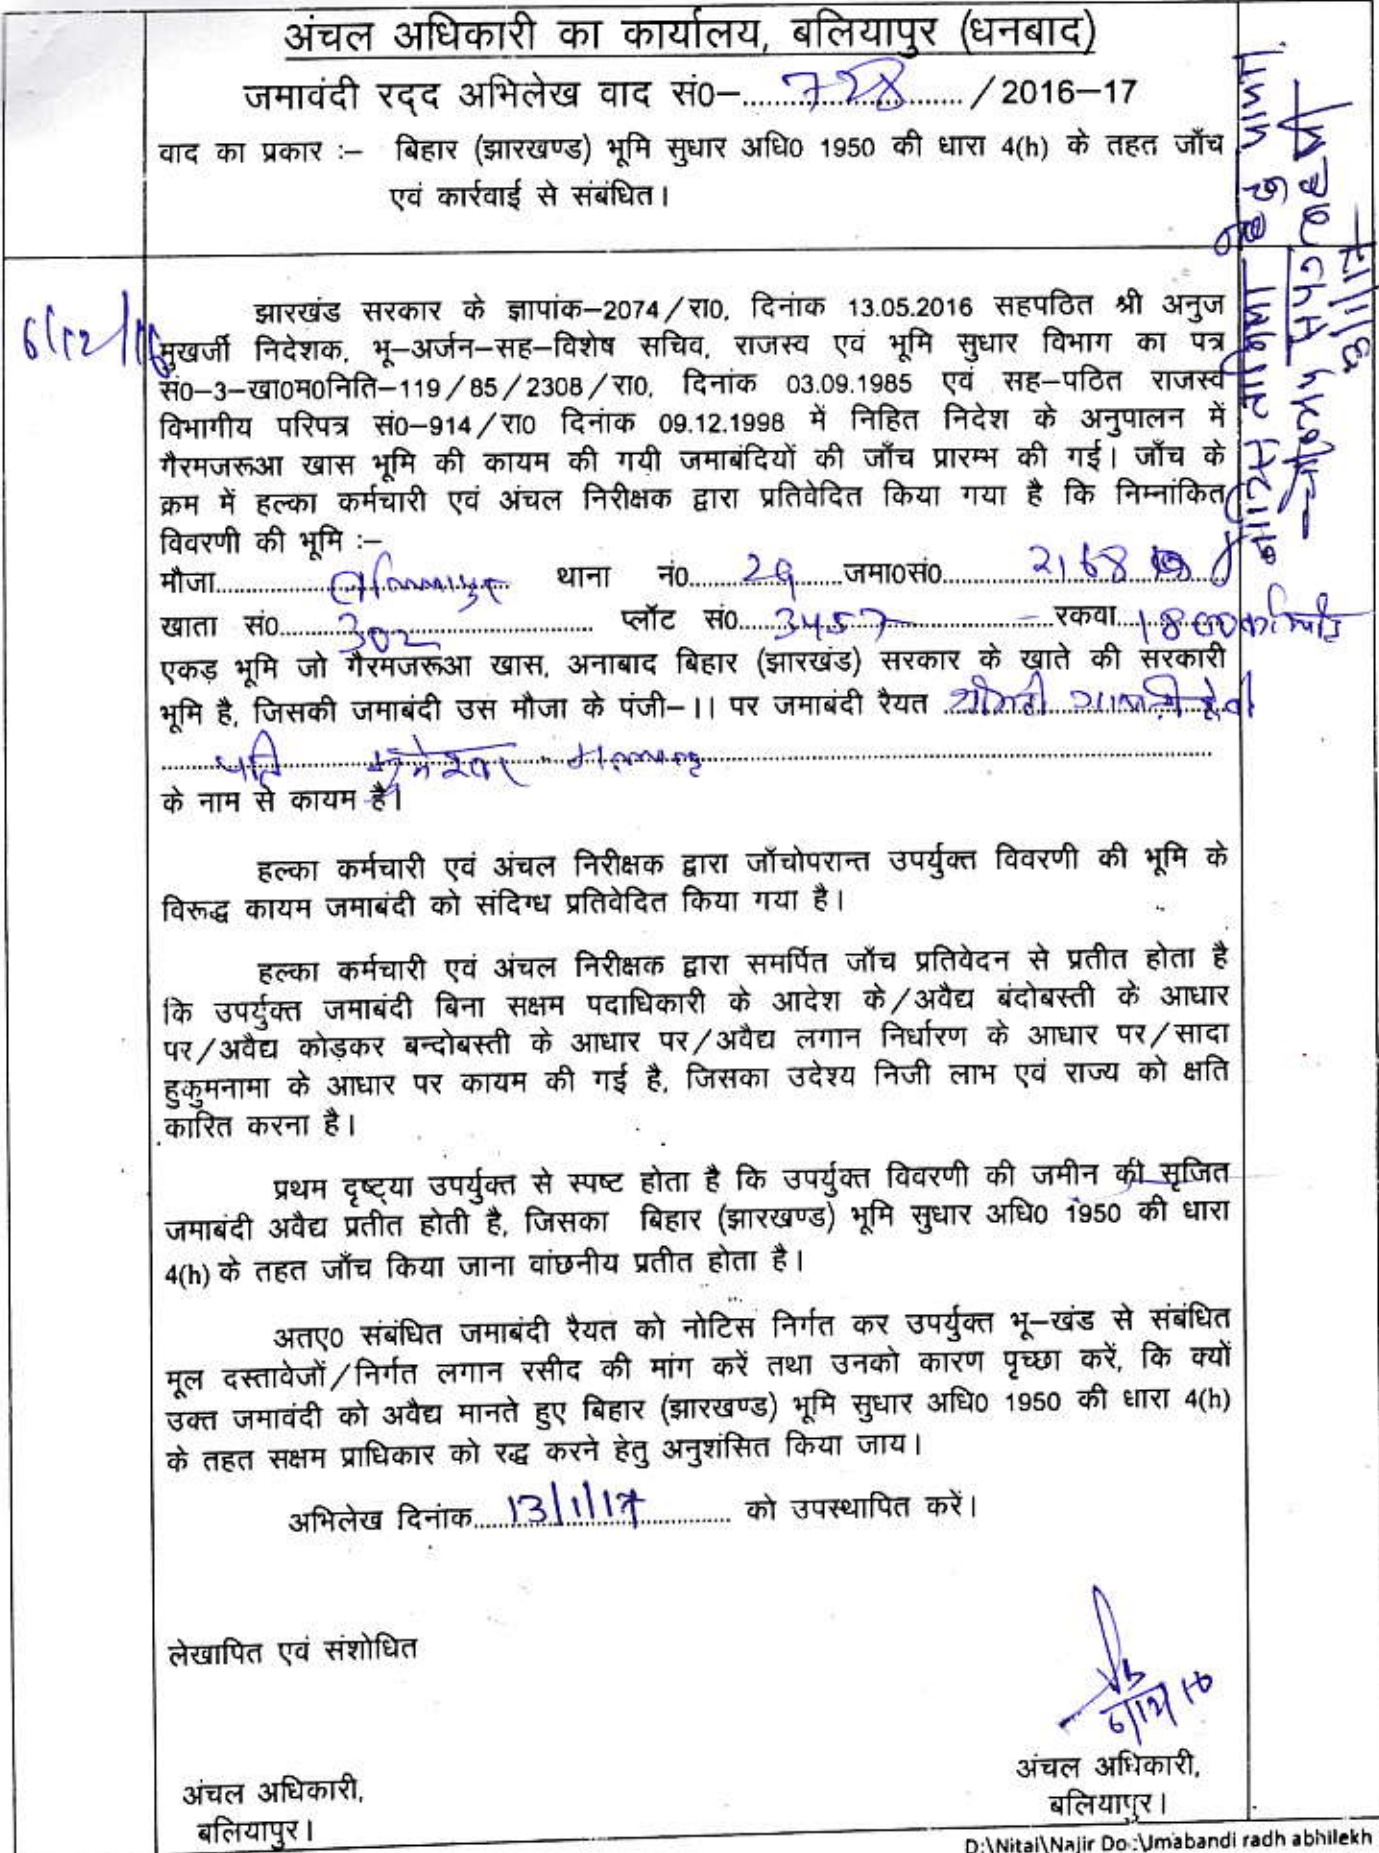 अंचल अधिकारी का कार्यालय, बलियापुर (धनबाद)
जमावंदी रद्द अभिलेख वाद सं0–....728..../2016–17
वाद का प्रकार :– बिहार (झारखण्ड) भूमि सुधार अधि0 1950 की धारा 4(h) के तहत जाँच
एवं कार्रवाई से संबंधित।
6/12/16
झारखंड सरकार के ज्ञापांक–2074/रा0, दिनांक 13.05.2016 सहपठित श्री अनुज
मुखर्जी निदेशक, भू–अर्जन–सह–विशेष सचिव, राजस्व एवं भूमि सुधार विभाग का पत्र
सं0–3–खा0म0निति–119/85/2308/रा0, दिनांक 03.09.1985 एवं सह–पठित राजस्व
विभागीय परिपत्र सं0–914/रा0 दिनांक 09.12.1998 में निहित निदेश के अनुपालन में
गैरमजरूआ खास भूमि की कायम की गयी जमाबंदियों की जाँच प्रारम्भ की गई। जाँच के
क्रम में हल्का कर्मचारी एवं अंचल निरीक्षक द्वारा प्रतिवेदित किया गया है कि निम्नांकित
विवरणी की भूमि :–
मौजा.... थाना नं0....29....जमा0सं0....
खाता सं0....302.... प्लॉट सं0....3457....रकवा....
एकड़ भूमि जो गैरमजरूआ खास, अनाबाद बिहार (झारखंड) सरकार के खाते की सरकारी
भूमि है, जिसकी जमाबंदी उस मौजा के पंजी–।। पर जमाबंदी रैयत श्रीमती देवी
पति
के नाम से कायम है।
हल्का कर्मचारी एवं अंचल निरीक्षक द्वारा जाँचोपरान्त उपर्युक्त विवरणी की भूमि के
विरूद्ध कायम जमाबंदी को संदिग्ध प्रतिवेदित किया गया है।
हल्का कर्मचारी एवं अंचल निरीक्षक द्वारा समर्पित जाँच प्रतिवेदन से प्रतीत होता है
कि उपर्युक्त जमाबंदी बिना सक्षम पदाधिकारी के आदेश के/अवैद्य बंदोबस्ती के आधार
पर/अवैद्य कोड़कर बन्दोबस्ती के आधार पर/अवैद्य लगान निर्धारण के आधार पर/सादा
हुकुमनामा के आधार पर कायम की गई है, जिसका उदेश्य निजी लाभ एवं राज्य को क्षति
कारित करना है।
प्रथम दृष्ट्या उपर्युक्त से स्पष्ट होता है कि उपर्युक्त विवरणी की जमीन की सृजित
जमाबंदी अवैद्य प्रतीत होती है, जिसका बिहार (झारखण्ड) भूमि सुधार अधि0 1950 की धारा
4(h) के तहत जाँच किया जाना वांछनीय प्रतीत होता है।
अतए0 संबंधित जमाबंदी रैयत को नोटिस निर्गत कर उपर्युक्त भू–खंड से संबंधित
मूल दस्तावेजों/निर्गत लगान रसीद की मांग करें तथा उनको कारण पृच्छा करें, कि क्यों
उक्त जमावंदी को अवैद्य मानते हुए बिहार (झारखण्ड) भूमि सुधार अधि0 1950 की धारा 4(h)
के तहत सक्षम प्राधिकार को रद्ध करने हेतु अनुशंसित किया जाय।
अभिलेख दिनांक....13/1/17.... को उपस्थापित करें।
लेखापित एवं संशोधित
अंचल अधिकारी,
बलियापुर।
अंचल अधिकारी,
बलियापुर।